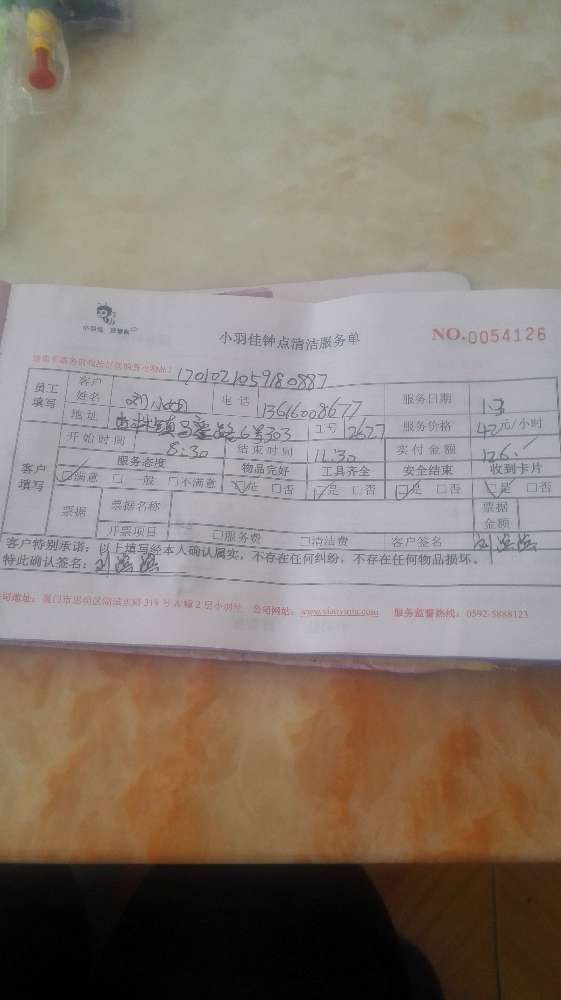 小羽佳 好管家
小羽佳钟点清洁服务单
NO.0054126
1701021059180887
员工填写 客户姓名 刘小姐 电话 13616008677 服务日期
地址 6号303 工号 2627 服务价格 42元/小时
开始时间 8:30 结束时间 11:30 实付金额 126.
客户填写 服务态度 物品完好 工具齐全 安全结束 收到卡片
☑满意 □一般 □不满意 ☑是 □否 ☑是 □否 ☑是 □否 ☑是 □否
票据 票据名称 票据金额
开票项目 □服务费 □清洁费 客户签名 刘
客户特别承诺：以上填写经本人确认属实，不存在任何纠纷，不存在任何物品损坏。
特此确认签名：刘
公司地址：厦门市思明区 219号A幢2层小羽佳 公司网站：www.xiaoyujia.com 服务监督热线：0592-5888123